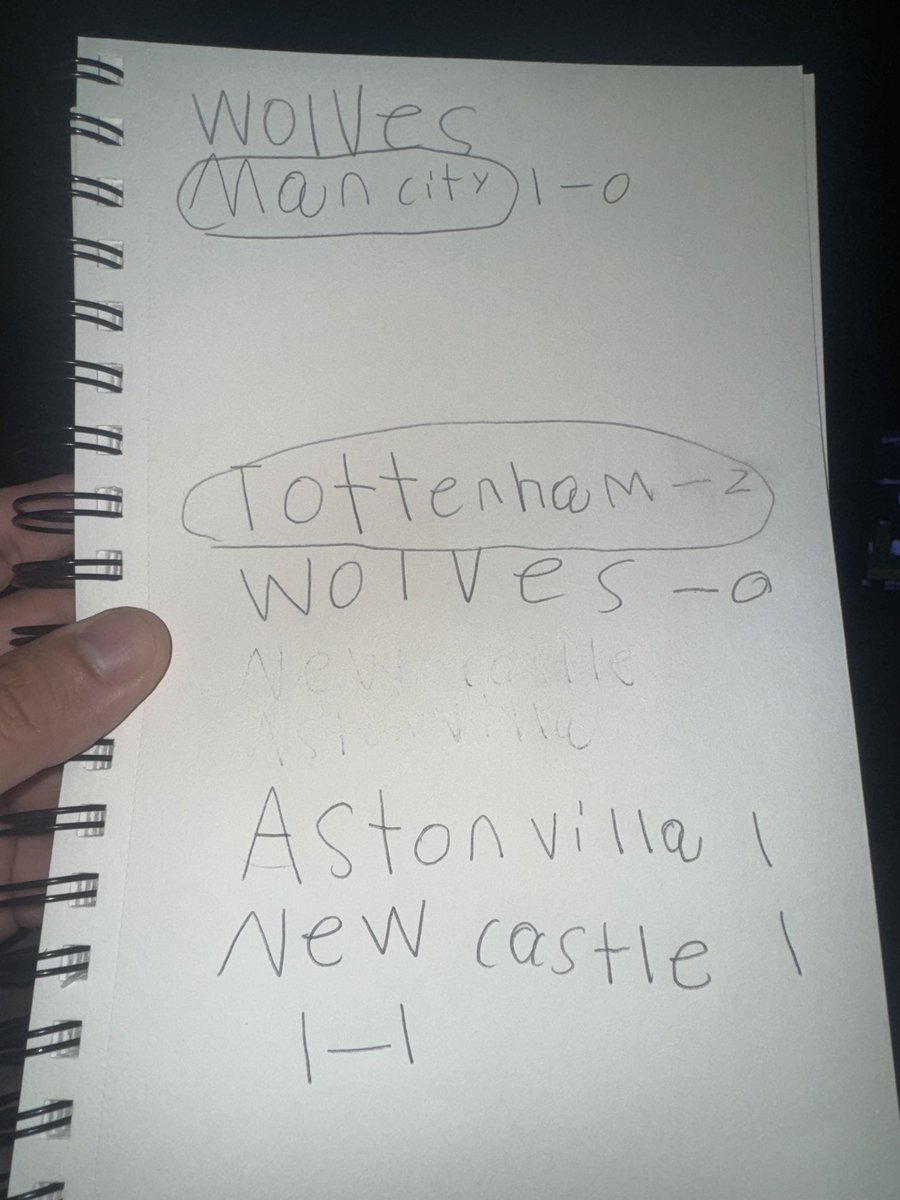 Wolves
Man city 1-0
Tottenham-2
Wolves -0
New castle
Astonvilla
Astonvilla 1
New castle 1
1-1